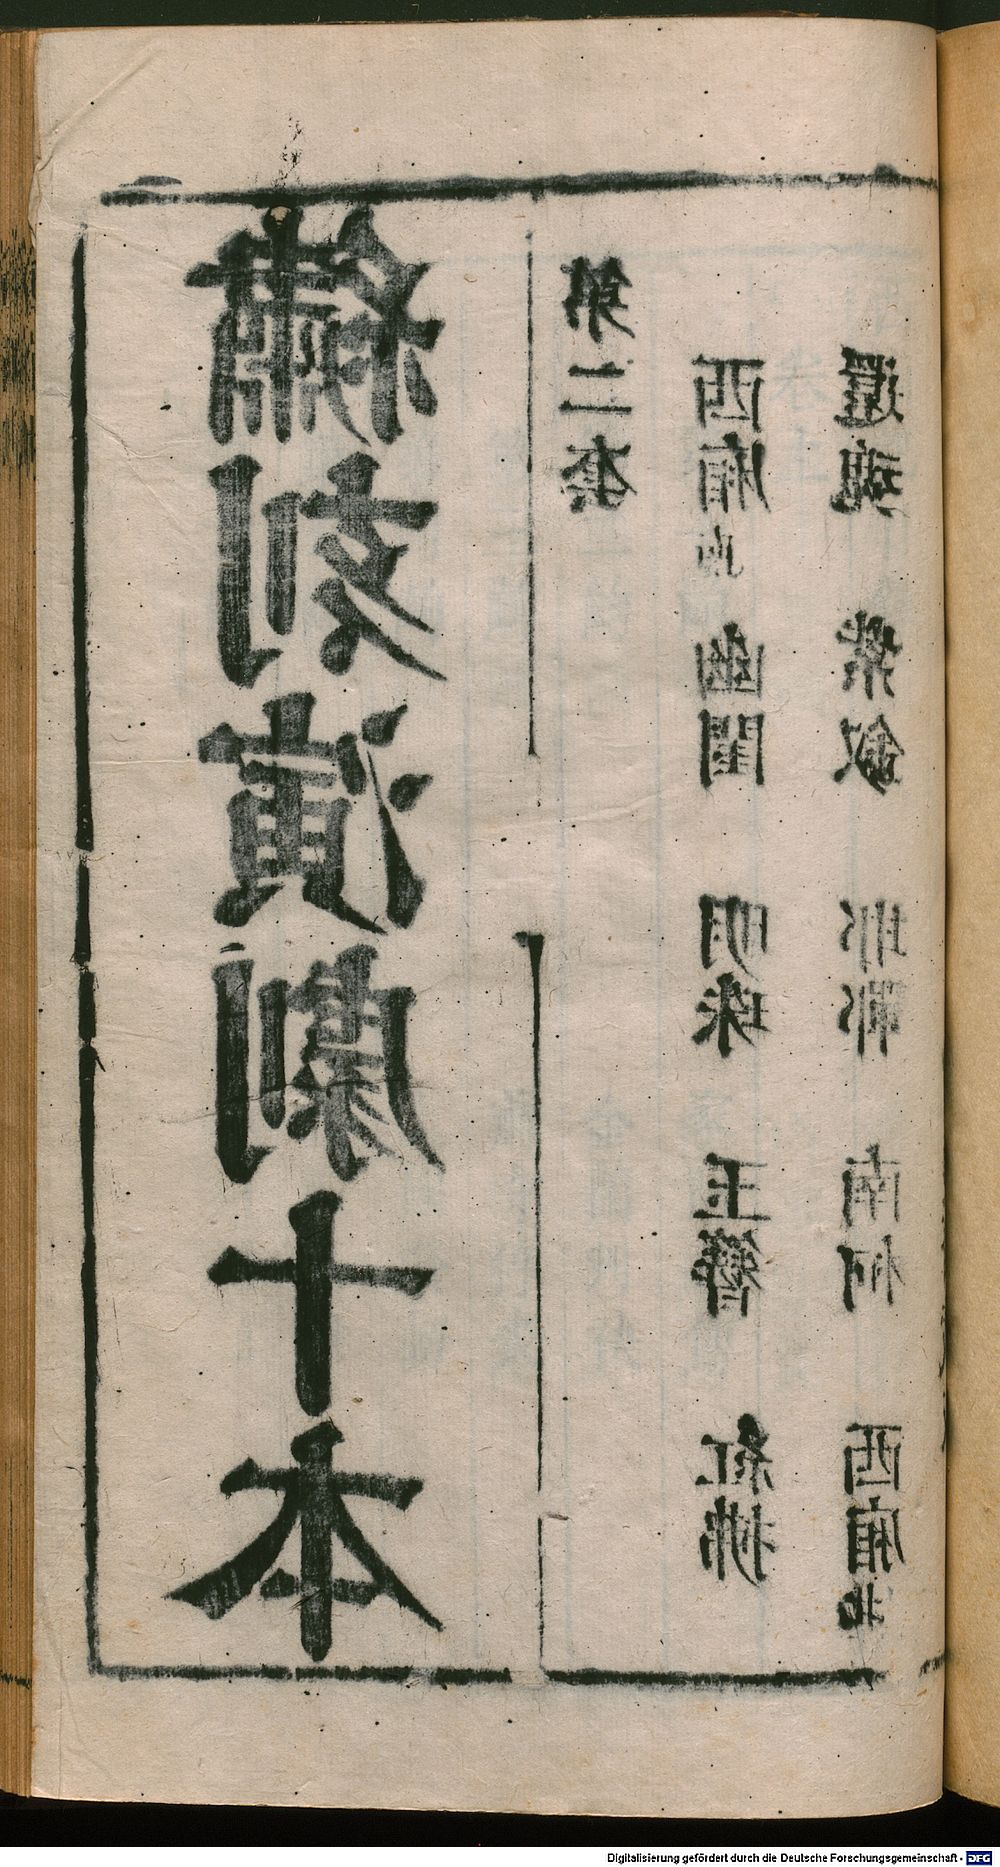 繡刻演劇十本
第二套
西廂南 幽閨 明珠 玉簪 紅拂
還魂 紫釵 邯鄲 南柯 西廂北
Digitalisierung gefördert durch die Deutsche Forschungsgemeinschaft - DFG